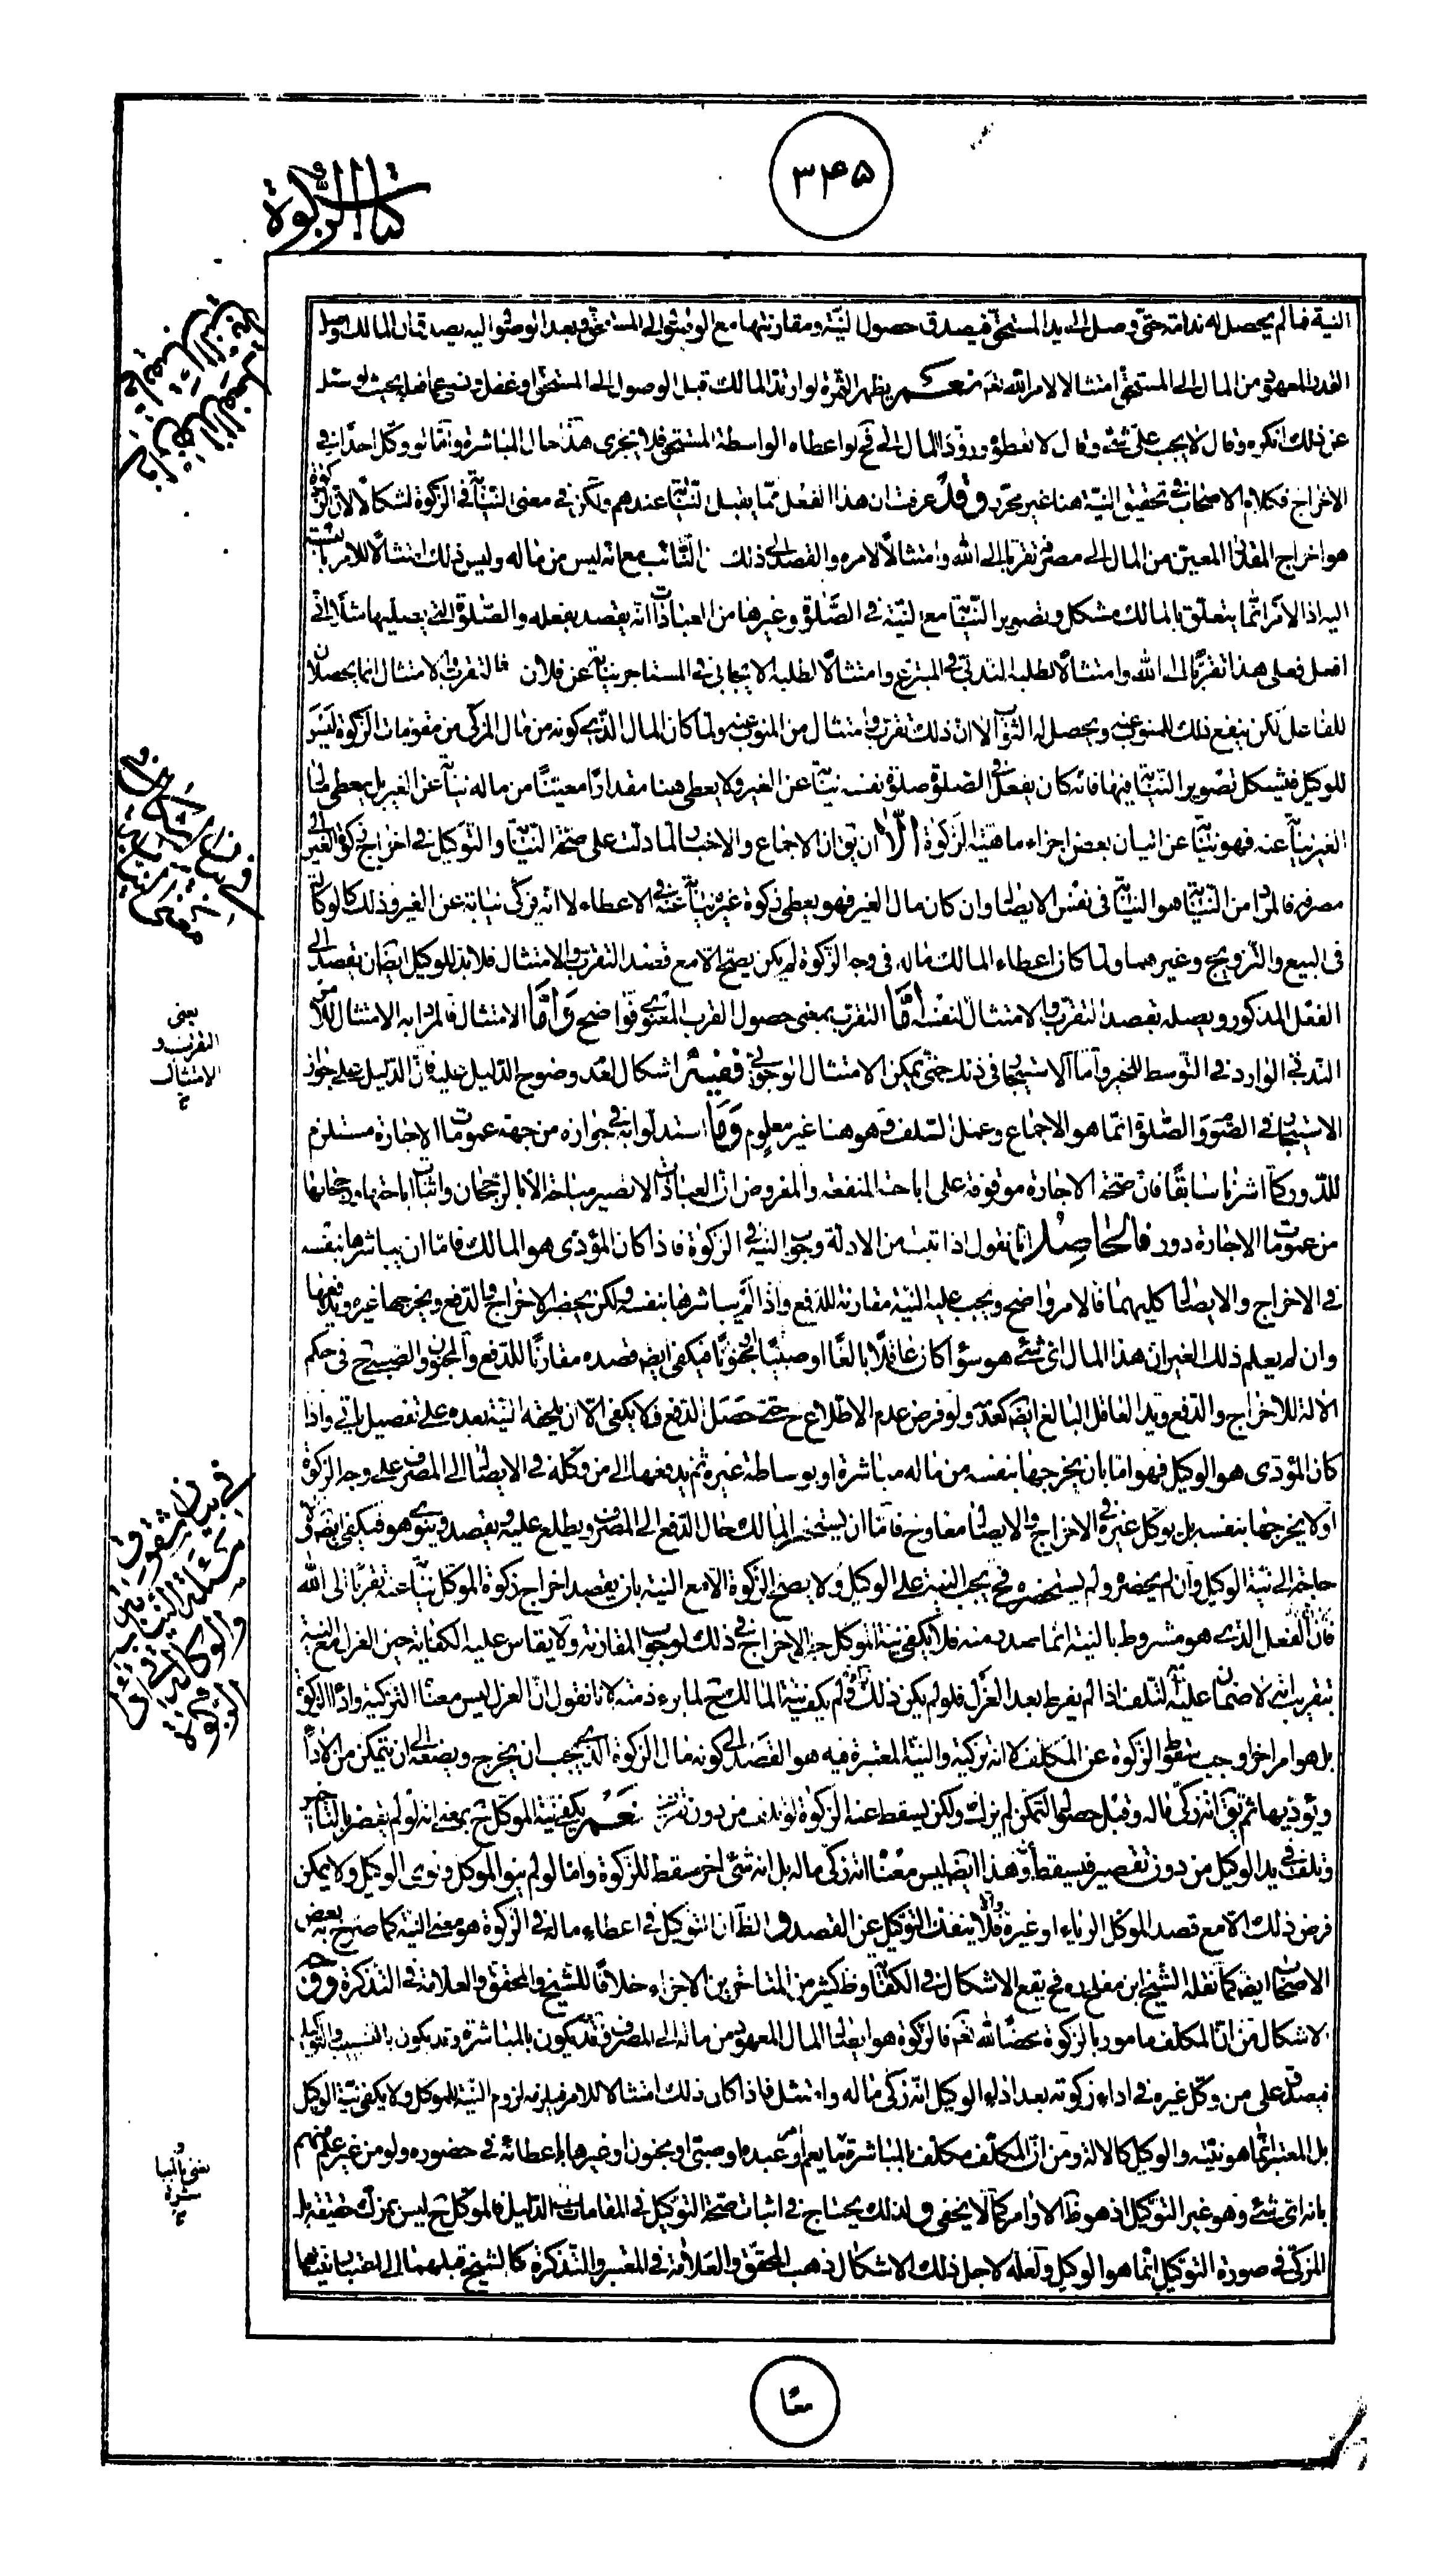 ۳۴۵
كتاب الزكوة
النية فما لم يحصل له ندامة حتى وصل الى يد المستحق فيصدق حصول النية ومقارنتها مع الوصول الى المستحق وبعد الوصول اليه يصدق ان المالك اوصل
القدر المعهود من المال الى المستحق امتثالا لامر الله نعم يظهر الثمرة لو ارتد المالك قبل الوصول الى المستحق او غفل ونسى عما فعل بحيث لو سئل
عن ذلك انكره وقال لا يجب على شئ وقال لا تعطوه وردوا المال الى فح لو اعطاه الواسطة المستحق فلا يجزى هذا حال المباشرة واما لو وكل احدا في
الاخراج فكلام الاصحاب في تحقيق النية هنا غير محرر وقد عرفت ان هذا الفعل مما يقبل النيابة عندهم ولكن في معنى النيابة في الزكوة اشكالا لان الزكوة
هو اخراج المقدار المعين من المال الى مصرفه تقربا الى الله وامتثالا لامره والقصد الى ذلك من النائب مع انه ليس من ماله وليس ذلك امتثالا للامر بالنسبة
اليه اذ الامر انما يتعلق بالمالك مشكل وتصوير النيابة مع النية في الصلوة وغيرها من العبادات انه يقصد بفعله والصلوة التي يصليها مثلا انى
افعل فعلى هذا تقربا الى الله وامتثالا لطلبه الندبى في المتبرع وامتثالا لطلبه الايجابى في المستاجر نيابة عن فلان فالتقرب والامتثال انما يحصلان
للفاعل لكن ينفع ذلك للمنوب عنه ويحصل له الثواب لا ان ذلك تقرب وامتثال من المنوب عنه ولما كان المال الذي كونه من مال المزكى من مقومات الزكوة ليس
للوكيل فيشكل تصوير النيابة فيها فانه كان يفعل في الصلوة صلوة نفسه نيابة عن الغير ولا يعطى هنا مقدارا معينا من ماله نيابة عن الغير بل يعطى مال
الغير نيابة عنه فهو نيابة عن اتيان بعض اجزاء ماهية الزكوة الا ان يق ان الاجماع والاخبار لما دلت على صحة النيابة والتوكيل في اخراج زكوة الغير الى
مصرفه فالمراد من النيابة هو النيابة في نفس الايصال وان كان مال الغير فهو يعطى زكوة غيره نيابة عنه في الاعطاء لا انه زكى نيابة عن الغير وذلك كالوكالة
في البيع والتزويج وغيرهما ولما كان اعطاء المالك ماله في وجه الزكوة لم يكن يصح الا مع قصد التقرب والامتثال فلا بد للوكيل ايضا ان يقصد الى
الفعل المذكور ويصله بقصد التقرب والامتثال لنفسه اما التقرب بمعنى حصول القرب المعنوى فواضح واما الامتثال فالمراد به الامتثال للامر
الندبى الوارد في التوسط للخير واما الاستيجار في ذلك حتى يمكن الامتثال الوجوبى ففيه اشكال لعدم وضوح الدليل عليه فان الدليل على جواز
الاستيجار في الصوم والصلوة انما هو الاجماع وعمل السلف وهو هنا غير معلوم وما استدلوا به في جوازه من جهة عمومات الاجارة مستلزم
للدور كما اشرنا سابقا فان صحة الاجارة موقوفة على اباحة المنفعة والمفروض ان العبادات لا تصير مباحة الا بالرجحان واثبات اباحتها ورجحانها
من عمومات الاجارة دور فالحاصل انا نقول اذا ثبت من الادلة وجوب النية في الزكوة فاذا كان المؤدى هو المالك فاما ان يباشرها بنفسه
في الاخراج والايصال كليهما فالامر واضح ويجب عليه النية مقارنة للدفع واذا لم يباشرها بنفسه ولكن يحضر الاخراج والدفع ويخرجها غيره ويدفعها
وان لم يعلم ذلك الغير ان هذا المال اى شئ هو سواء كان عاقلا بالغا او صبيا او مجنونا فيكفى ايضا قصده مقارنا للدفع والمجنون والصبى ح في حكم
الالة للاخراج والدفع ويد العاقل البالغ ايضا كيده ولو فرض عدم الاطلاع ح حتى حصل الدفع فلا يكفى الا ان يلحقه النية بعده على تفصيل ياتى واذا
كان المؤدى هو الوكيل فهو اما بان يخرجها بنفسه من ماله مباشرة او بوساطة غيره ثم يدفعها الى من وكله في الايصال الى المصرف على وجه الزكوة
او لا يخرجها بنفسه بل يوكل غيره في الاخراج والايصال معا وح فاما ان يستحضر المالك حال الدفع الى المصرف ويطلع عليه ويقصد وينوى هو فيكفى ايضا ولا
حاجة الى نية الوكيل وان لم يحضره ولم يستحضره فح يجب النية على الوكيل ولا يصح الزكوة الا مع النية بان يقصد اخراج زكوة الموكل نيابة عنه تقربا الى الله
فان الفعل الذي هو مشروط بالنية انما صدر منه فلا يكفى نية الموكل حين الاخراج في ذلك لوجوب المقارنة ولا يقاس عليه الكفاية حين العزل مع النية
بتقريب انه لا ضمان عليه لتلفه اذا لم يفرط بعد العزل فلو لم يكن ذلك ولم يكف نية المالك ح لما برء ذمته لانا نقول ان العزل ليس معناه التزكية واداء الزكوة
بل هو امر اخر اوجب سقوط الزكوة عن المكلف لا انه تزكية والنية المعتبرة فيه هو القصد الى كونه مال الزكوة الذي يجب ان يخرج ويضعه الى ان يتمكن من الاداء
ويؤديها ثم يق انه زكى ماله وقبل حصول التمكن لم يزك ولكن يسقط عنه الزكوة لو تلف من دون تفريط نعم يكفى نية الموكل ح بمعنى انه لو لم يقصر بالتاخير
وتلف في يد الوكيل من دون تقصير فيسقط وهذا ايضا ليس معناه انه زكى ماله بل انه شئ اخر مسقط للزكوة واما لو لم ينو الموكل ونوى الوكيل ولا يمكن
فرض ذلك الا مع قصد الموكل الرياء او غيره والا فلا ينفك التوكيل عن القصد والظ ان التوكيل في اعطاء ماله في الزكوة هو معنى النية كما صرح به بعض
الاصحاب ايضا كما نقله الشيخ ابن مفلح ره فح يقع الاشكال في الكفاية وظ كثير من المتاخرين الاجزاء خلافا للشيخ والمحقق والعلامة في التذكرة ووجه
الاشكال من ان المكلف مامور بالزكوة محضا لله نعم فالزكوة هو ايصال المال المعهود من ماله الى المصرف وقد يكون بالمباشرة وقد يكون بالتسبيب والتوكيل
فيصدق على من وكل غيره في اداء زكوته بعد اداء الوكيل انه زكى ماله وامتثل فاذا كان ذلك امتثالا للامر فيلزمه لزوم النية للموكل ولا يكفى نية الوكيل
بل المعتبر انما هو نيته والوكيل كالالة ومن ان المكلف مكلف بالمباشرة بما يعم امر عبده او صبى او مجنون او غيرها باعطائه في حضوره ولو من غير علم منهم
بانه اى شئ وهو غير التوكيل اذ هو ظ الاوامر كما لا يخفى ولذلك يحتاج في اثبات صحة التوكيل في المقامات الى الدليل فالموكل ح ليس بمزك حقيقة بل
المزكى في صورة التوكيل انما هو الوكيل ولعله لاجل ذلك الاشكال ذهب المحقق والعلامة في المعتبر والتذكرة كالشيخ قبلهما الى اعتبار نيتهما
معا
يعنى
التقرب و
الامتثال
في بيان شقوق
مسئلة النيابة
والوكالة في اداء
الزكوة